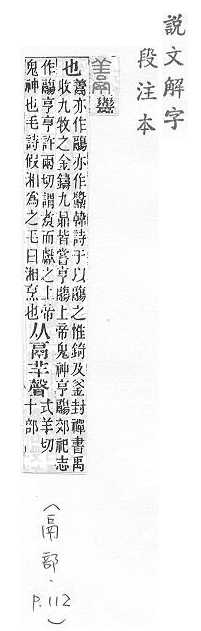 說文解字
段注本
也
亦作鬺亦作韓詩于以鬺之惟錡及釜封禪書禹
收九牧之金鑄九鼎皆嘗亨鬺上帝鬼神亨鬺郊祀志
作鬺亨亨許兩切謂煮而獻之上帝
鬼神也毛詩假湘為之毛曰湘烹也
从鬲羊聲
式羊切
十部
(鬲部.P.112)